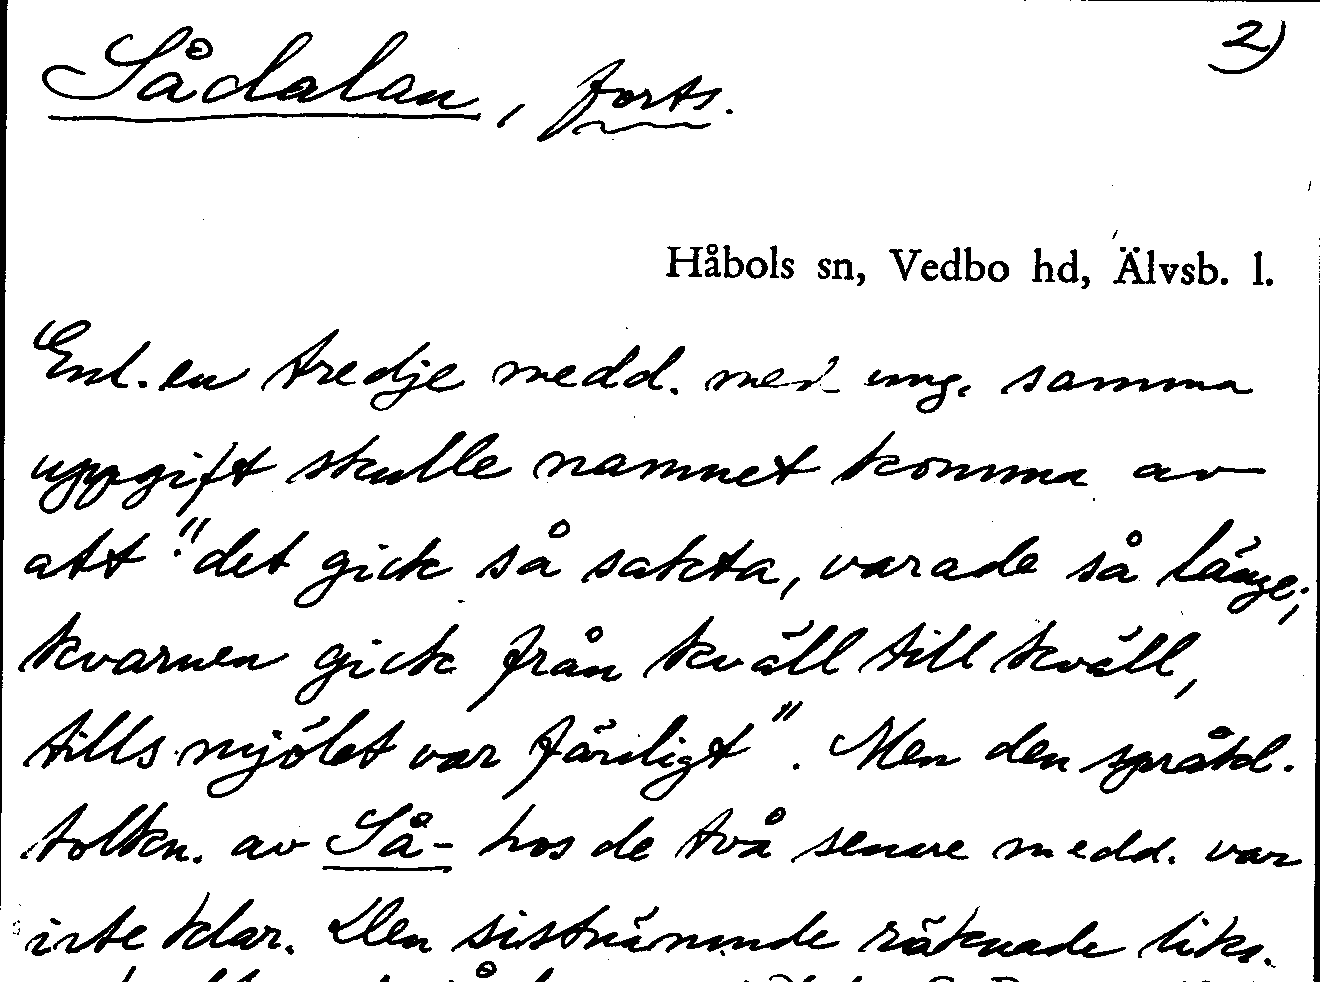 Sådalan, forts. 2)
Håbols sn, Vedbo hd, Älvsb. l.
Enl. en tredje medd. med ung. samma
uppgift skulle namnet komma av
att "det gick så sakta, varade så länge;
kvarnen gick från kväll till kväll,
tills mjölet var färdigt". Men den språkl.
tolkn. av Så- hos de två senare medd. var
inte klar. Den sistnämnde räknade liks.